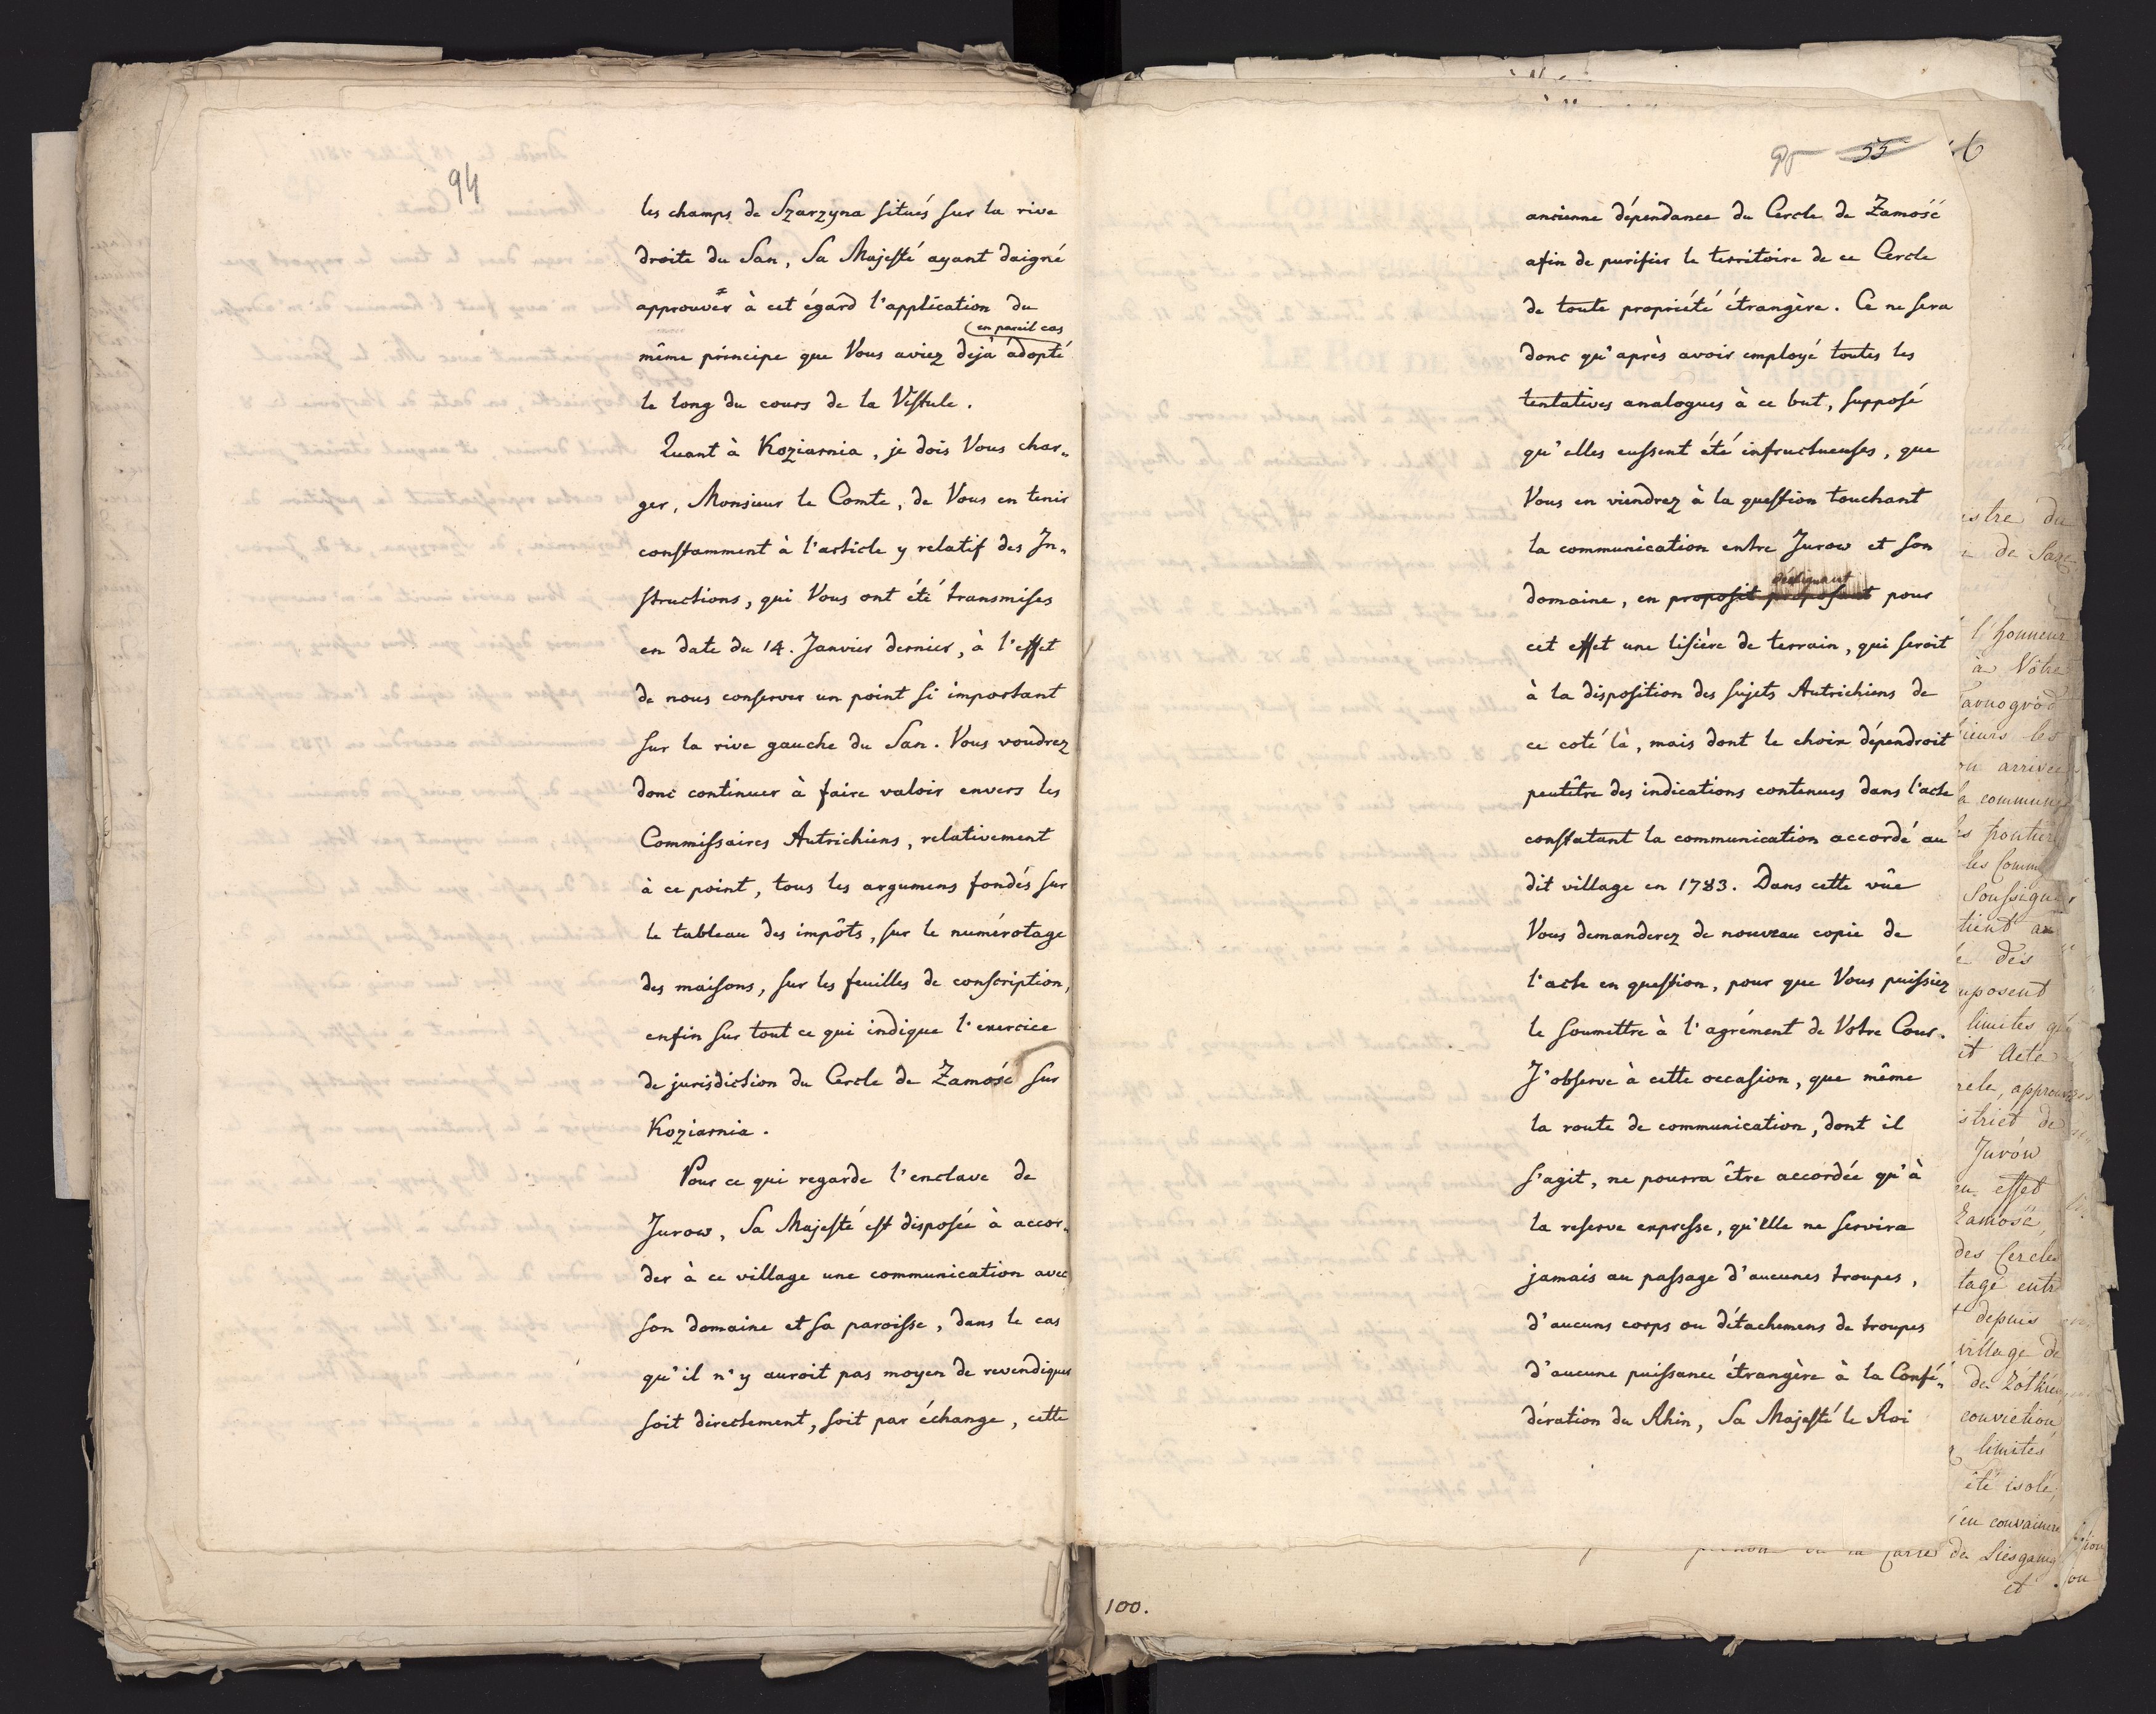 94
les champs de Szarzyna situés sur la rive
droite du San, Sa Majesté ayant daigné
approuver à cet égard l'application du
(en pareil cas
même principe que Vous aviez dejà adopté
le long du cours de la Vistule.
Quant à Koziarnia, je dois Vous char„
ger, Monsieur le Comte, de Vous en tenir
constamment à l'article y relatif des In„
structions, qui Vous ont été transmises
en date du 14. Janvier dernier, à l'effet
de nous conserver un point si important
sur la rive gauche du San. Vous voudrez
donc continuer à faire valoir envers les
Commissaires Autrichiens, relativement
à ce point, tous les argumens fondés sur
le tableau des impôts, sur le numérotage
des maisons, sur les feuilles de conscription,
enfin sur tout ce qui indique l'exercice
de jurisdiction du Cercle de Zamość sur
Koziarnia.
Pour ce qui regarde l'enclave de
Jurow, Sa Majesté est disposée à accor„
der à ce village une communication avec
son domaine et sa paroisse, dans le cas
qu'il n'y auroit pas moyen de revendiquer
soit directement, soit par échange, cette
95 55
ancienne dépendance du Cercle de Zamość
afin de purifier le territoire de ce Cercle
de toute propriété étrangère. Ce ne sera
donc qu'après avoir employé toutes les
tentatives analogues à ce but, supposé
qu'elles eussent été infructueuses, que
Vous en viendrez à la question touchant
la communication entre Jurow et son
désignant
domaine, en proposit proposant pour
cet effet une lisière de terrain, qui seroit
à la disposition des sujets Autrichiens de
ce coté là, mais dont le choix dépendroit
peutêtre des indications contenues dans l'acte
constatant la communication accordé au
dit village en 1783. Dans cette vûe
Vous demanderez de nouveau copie de
l'acte en question, pour que Vous puissiez
le soumettre à l'agrément de Votre Cour.
J'observe à cette occasion, que même
la route de communication, dont il
s'agit, ne pourra être accordée qu'à
la reserve expresse, qu'Elle ne servira
jamais au passage d'aucunes troupes,
d'aucuns corps ou détachemens de troupes
d'aucune puissance étrangère à la Confé„
dération du Rhin, Sa Majesté le Roi
6
de Saxe
l'honneur
à Vôtre
arrivée
les Comm
Soussigné
des
limites
Acte
Jurów
en effet
Zamość,
des Cercles
depuis
village de
de
conviction
limites
été isolé,
en convaincre
de Liesganig
et
100.